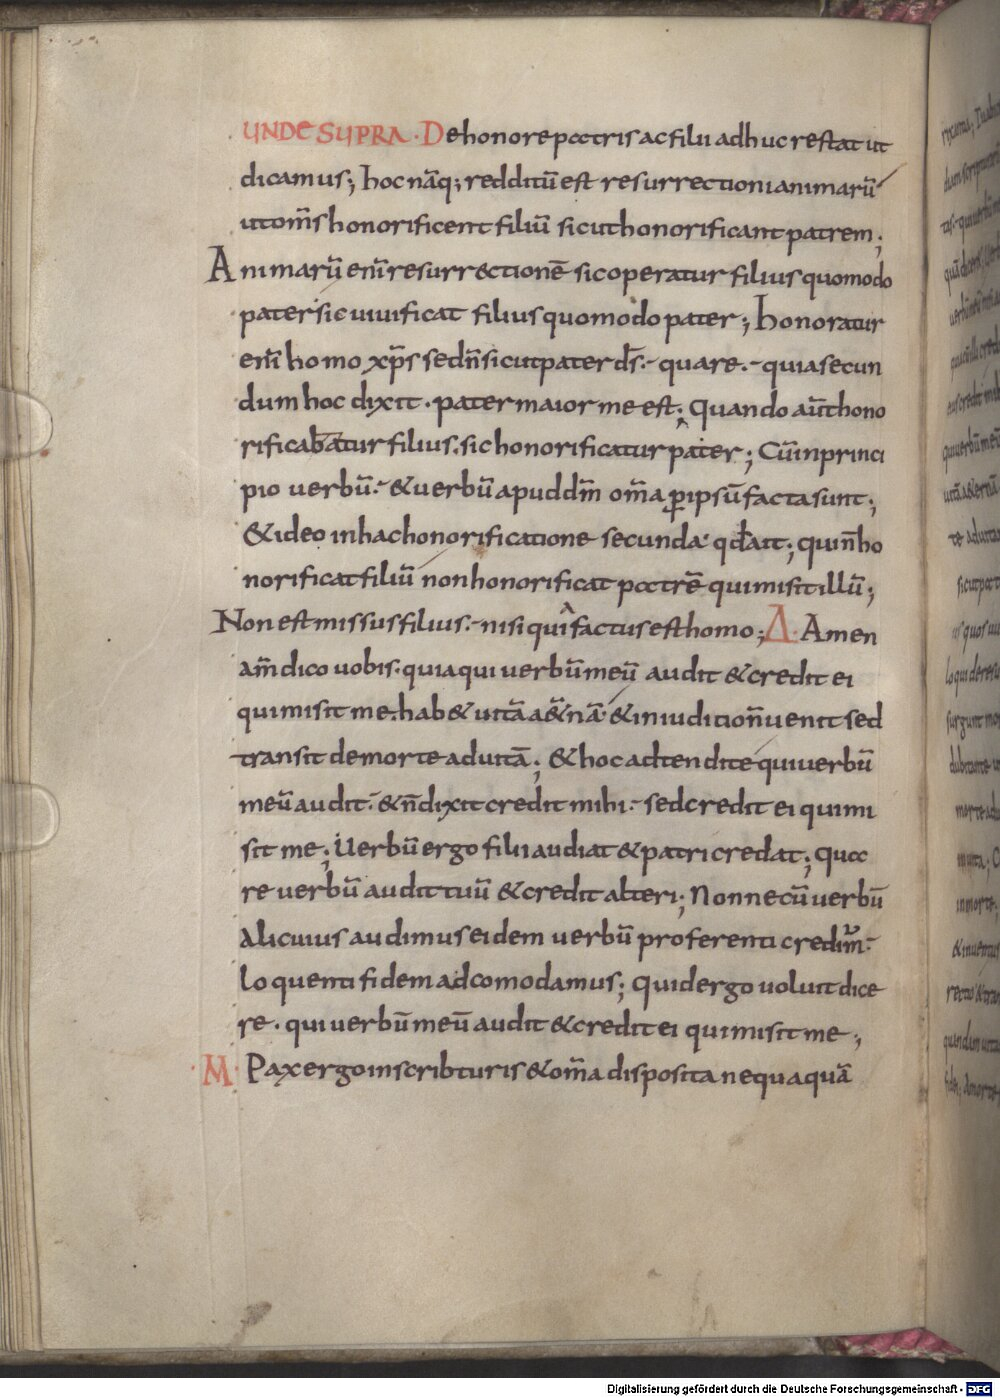 UNDE SUPRA · De honore patris ac filii adhuc restat ut
dicamus; hoc nāq; redditū est resurrectioni animarū
ut om̄s honorificent filiū sicut honorificant patrem;
Animarū eni͞ resurrectionē sic operatur filius quomodo
pater sic uiuificat filius quomodo pater; honoratur
eni͞ homo xp̄s sed n̄ sicut pater d̄s · quare · quia secun
dum hoc dixit · pater maior me est; Quando aūt hono
rificabatur filius · sic honorificatur pater; Cū in princi
pio uerbū · & uerbū apud dm̄ om̄a ꝑ ipsū facta sunt;
& ideo in hac honorificatione secunda qđ ait; qui n̄ ho
norificat filiū non honorificat patrē qui misit illū;
Non est missus filius · nisi qui factus est homo; Δ · Amen
am̄ dico uobis · quia qui uerbū meū audit & credit ei
qui misit me · hab& uitā a&nā · & in iuditio n̄ uenit sed
transit de morte ad uitā; & hoc adtendite qui uerbū
meū audit · & n̄ dixit credit mihi · sed credit ei qui mi
sit me; Uerbū ergo filii audiat & patri credat; qua
re uerbū audit tuū & credit alteri; Nonne cū uerbū
Alicuius audimus eidem uerbū proferenti credim̄ ·
loquenti fidem adcomodamus; Quid ergo uoluit dice
re · qui uerbū meū audit & credit ei qui misit me;
M · Pax ergo in scribturis & om̄a disposita nequaquā
Digitalisierung gefördert durch die Deutsche Forschungsgemeinschaft - DFG